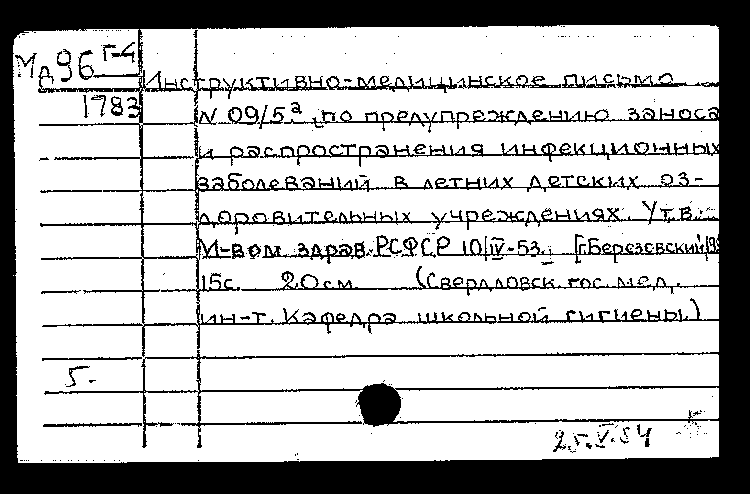 Мд96 Г-4
1783
Инструктивно-медицинское письмо
N 09/5а по предупреждению заноса
и распространения инфекционных
заболеваний в летних детских оз-
доровительных учреждениях. Утв.
М-вом здрав. РСФСР 10/IV-53. [г.Березовский]
15с. 20см (Свердловск. гос. мед.
ин-т. Кафедра школьной гигиены)
5.
25.V.54